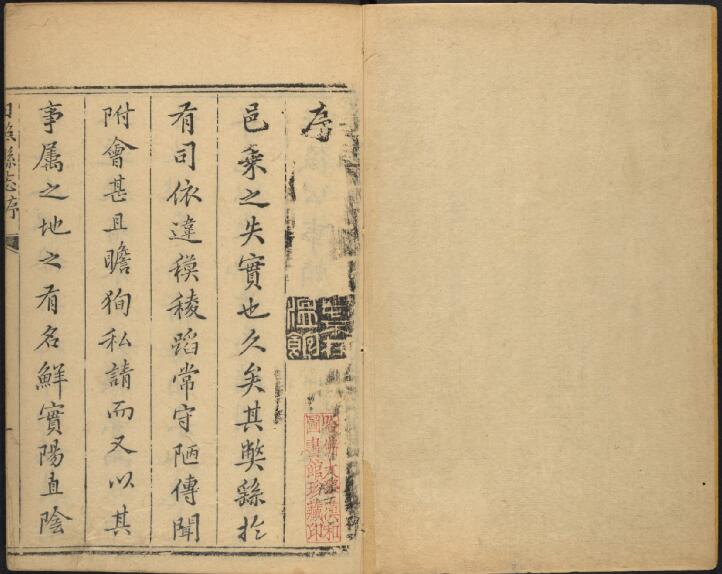 序
邑乘之失實也久矣其獘繇於
有司依違模稜蹈常守陋傳聞
附會甚且瞻狥私請而又以其
事属之地之有名鮮實陽直陰
縣志序
哈佛大學漢和
圖書館珍藏印